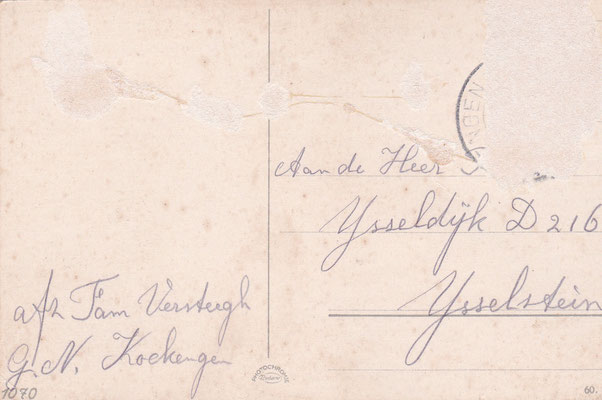 Aan de Heer
Ysseldijk D 216
Ysselstein
afz Fam Versteegh
G. N. Kockengen
1070
PHOTOCHROMIE
60.